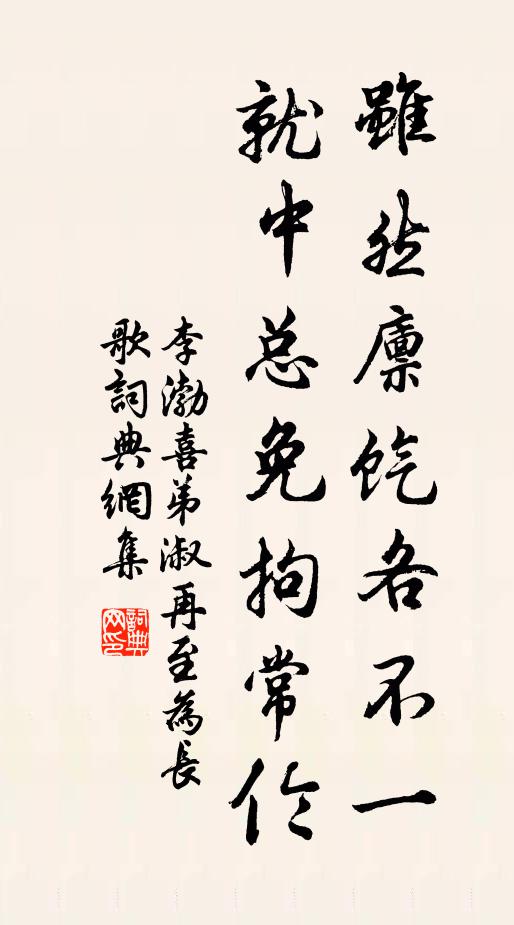 雖然廩饩各不一
就中总免拘常伦
李渤喜弟淑再至為長
歌詞典網集
詞典
网印